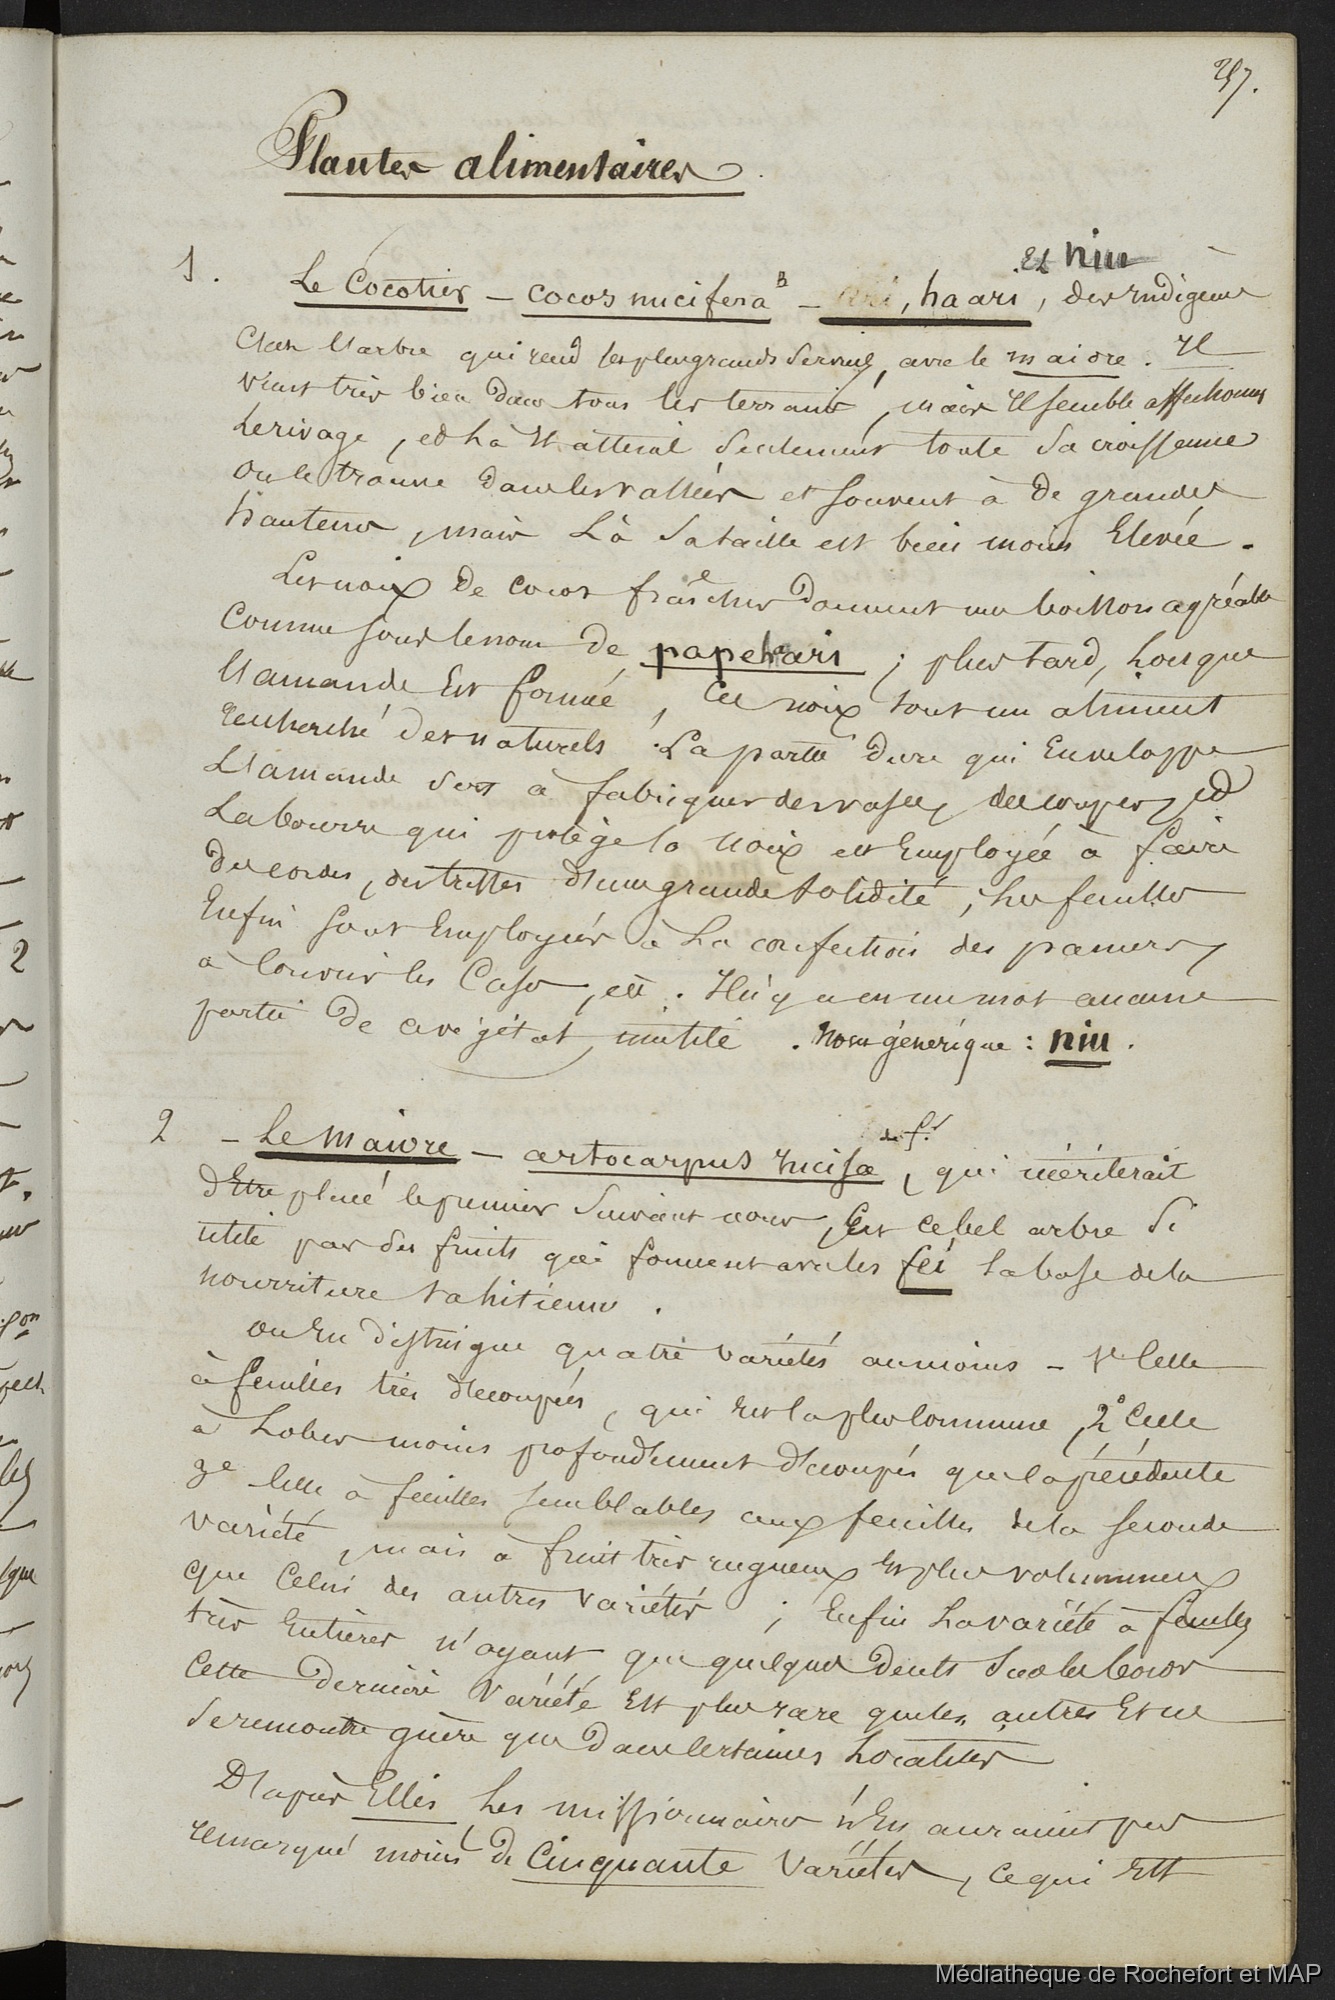 257.
Plantes alimentaires.
1. et niu
Le Cocotier — cocos nucifera — ari, haari, des indigènes
C'est l'arbre qui rend les plus grands services, avec le maiore. Il
vient très bien dans tous les terrains, mais il semble affectionner
le rivage, et là il atteint seulement toute sa croissance
on le trouve dans les vallées et souvent à de grandes
hauteurs, mais là sa taille est bien moins élevée.
Les noix de cocos fraîches donnent une boisson agréable
connue sous le nom de papehaari ; plus tard, lorsque
l'amande est formée, ces noix sont un aliment
recherché des naturels. La partie dure qui enveloppe
l'amande sert à fabriquer des vases, des coupes, et
la bourre qui protège la noix est employée à faire
des cordes, des tresses d'une grande solidité ; les feuilles
enfin sont employées à la confection des paniers,
à couvrir les cases, etc. Il n'y a en un mot aucune
partie de ce végétal, inutile. Nom générique : niu.
2 — Le maiore — artocarpus incisa L. f., qui mériterait
d'être placé le premier suivant nous, est ce bel arbre si
utile par des fruits qui forment avec les féi la base de la
nourriture tahitienne.
on en distingue quatre variétés au moins — 1° celle
à feuilles très découpées, qui est la plus commune, 2° celle
à lobes moins profondément découpés que la précédente
3e celle à feuilles semblables aux feuilles de la seconde
variété, mais à fruit très rugueux et plus volumineux
que celui des autres variétés ; enfin la variété à feuilles
très entières n'ayant que quelques dents sur les bords
cette dernière variété est plus rare que les autres et ne
se rencontre guère que dans certaines localités
D'après Ellis les missionnaires n'en auraient pas
remarqué moins de cinquante variétés, ce qui est
Médiathèque de Rochefort et MAP